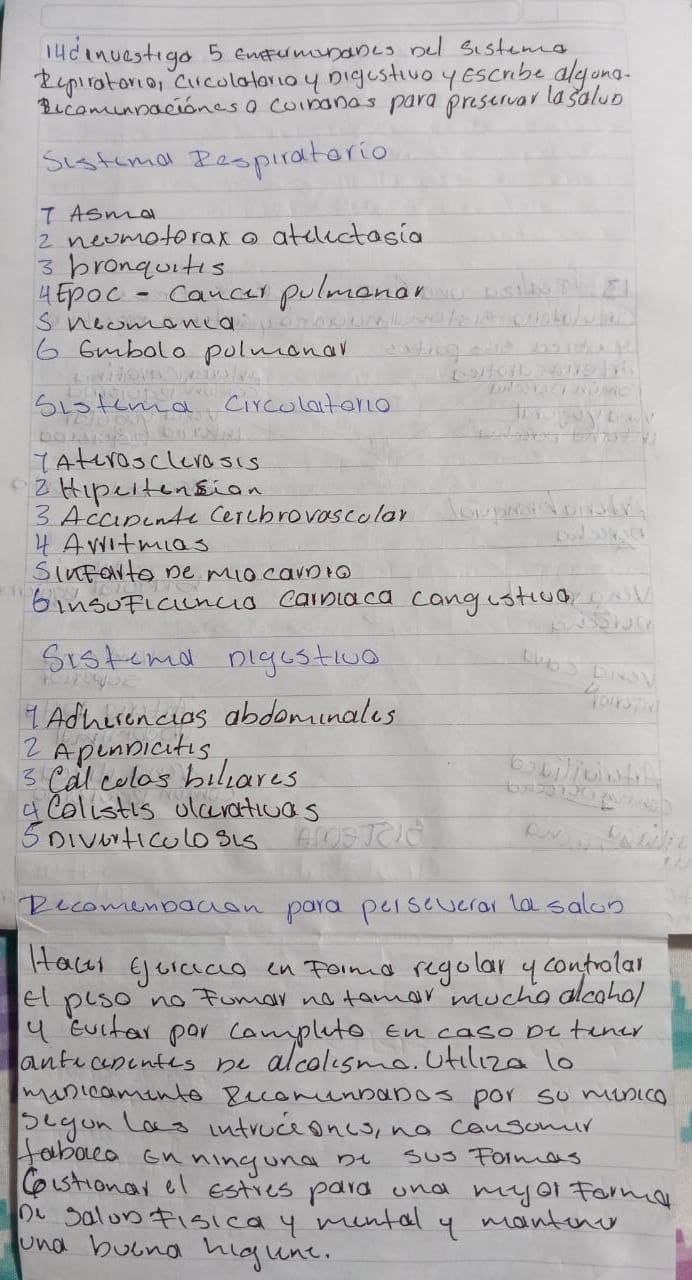 14d investiga 5 enfermedades del Sistema
Respiratorio, circulatorio y Digestivo y Escribe alguna-
Recomendaciónes o cuidados para preservar la salud
Sistema Respiratorio
1 Asma
2 neumotorax o atelectasia
3 bronquitis
4 Epoc - Cancer pulmonar
5 neumonia
6 Embolo pulmonar
Sistema Circulatorio
1 Aterosclerosis
2 Hipertension
3 Accidente Cerebrovascolar
4 Arritmias
5 infarto De miocardio
6 insuficiencia Cardiaca congestiva
Sistema Digestivo
1 Adherencias abdominales
2 Apendicitis
3 Cálcolos biliares
4 Colistis ulcerativas
5 Diverticulosis
Recomendacion para perseverar la salud
Hacer ejercicio en Forma regular y controlar
el peso no Fumar no tomar mucho alcohol
y Evitar por completo En caso De tener
antecedentes De alcolismo. Utiliza lo
medicamento Recomendados por su medico
Segun las intrucciones, no consumir
tabaco en ninguna De sus Formas
Gestionar el Estres para una myor Forma
De salud Fisica y mental y mantener
una buena higiene.